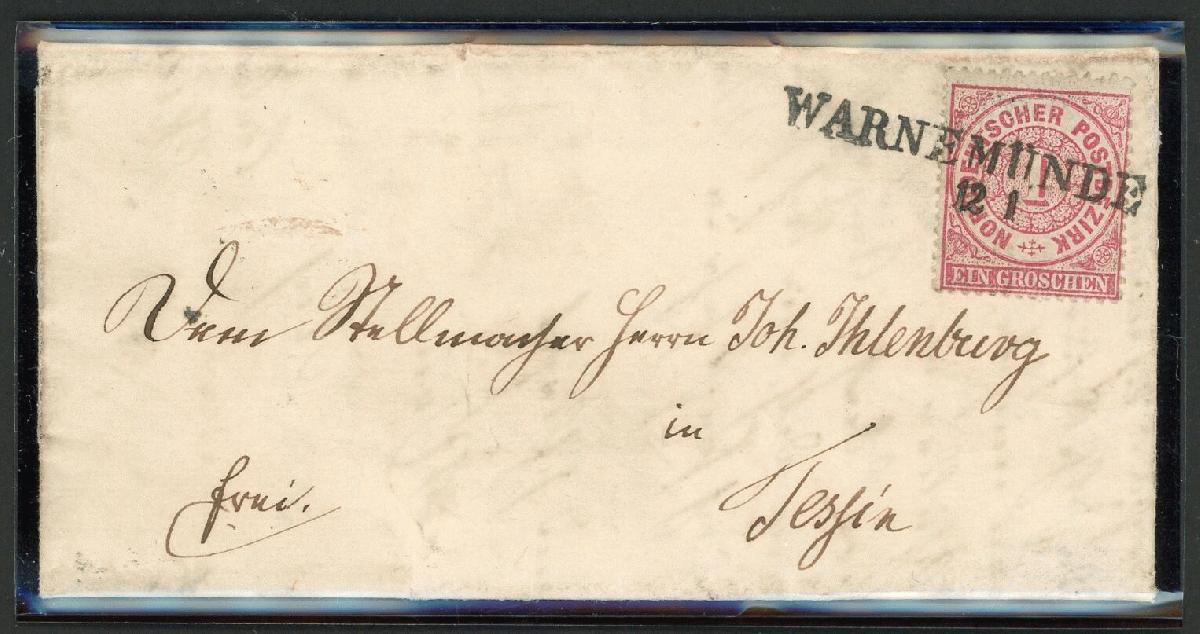 WARNEMÜNDE
12 1
NORDDEUTSCHER POSTBEZIRK
1
EIN GROSCHEN
Dem Stellmacher Herrn Joh. Ihlenburg
in
Tessin
frei.